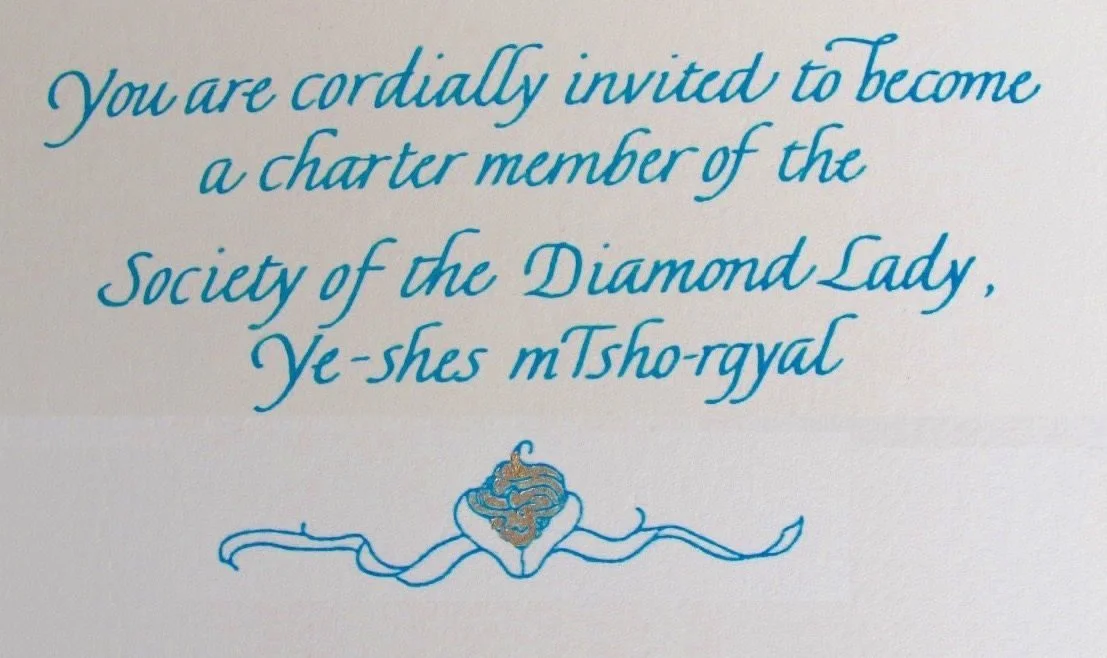 You are cordially invited to become
a charter member of the
Society of the Diamond Lady,
Ye-shes mTsho-rgyal